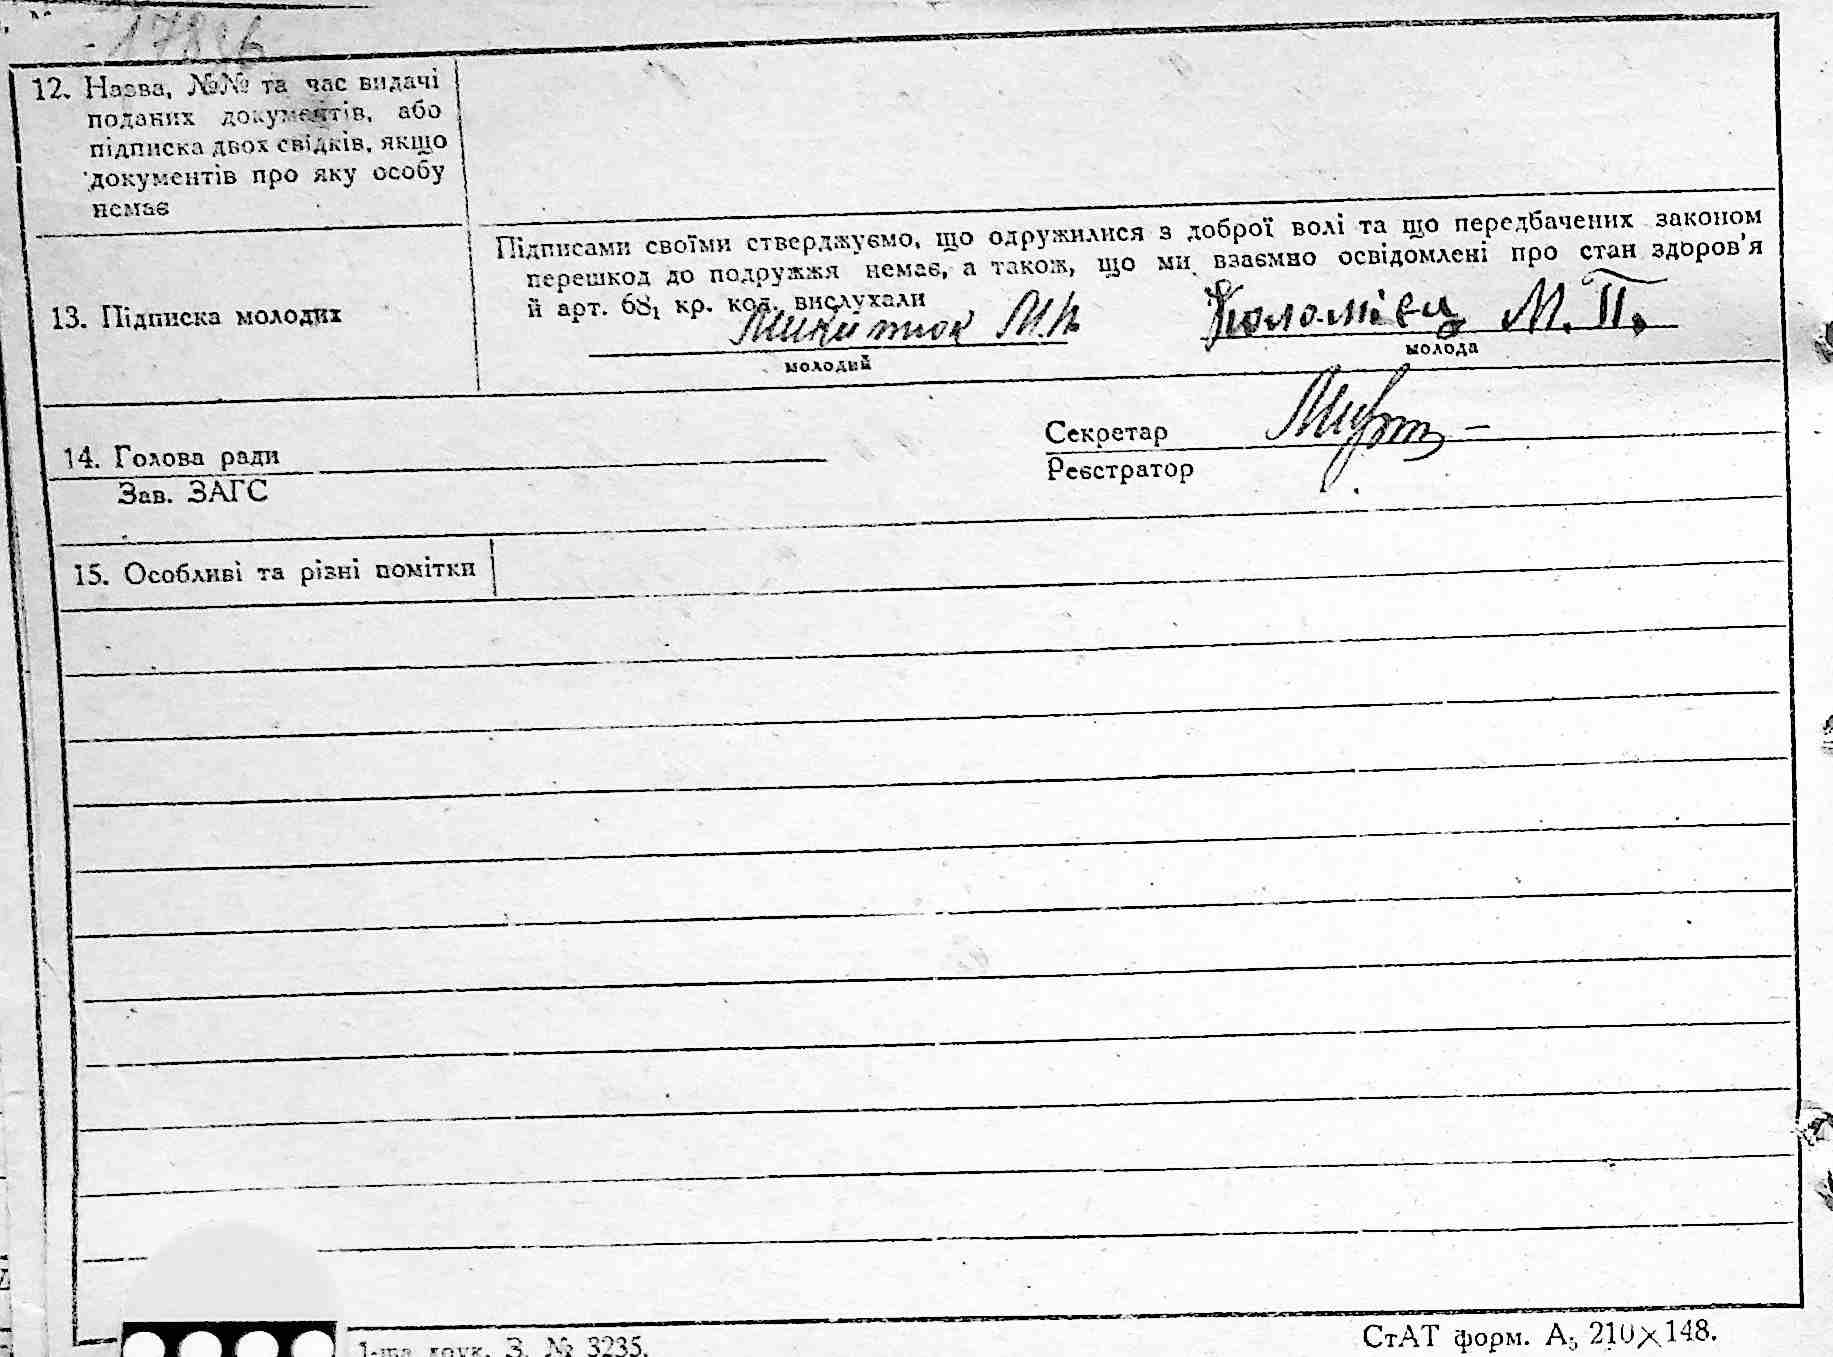 12. Назва, №№ та час видачі
поданих документів, або
підписка двох свідків, якщо
документів про яку особу
немає
Підписами своїми стверджуємо, що одружилися з доброї волі та що передбачених законом
перешкод до подружжя немає, а також, що ми взаємно освідомлені про стан здоров'я
й арт. 68₁ кр. код. вислухали
13. Підписка молодих
Микитюк М. Коломієц М. П.
молодий молода
14. Голова ради
Зав. ЗАГС
Секретар
Реєстратор
15. Особливі та різні помітки
друк. З. № 3235.
СтАТ форм. А₅ 210×148.